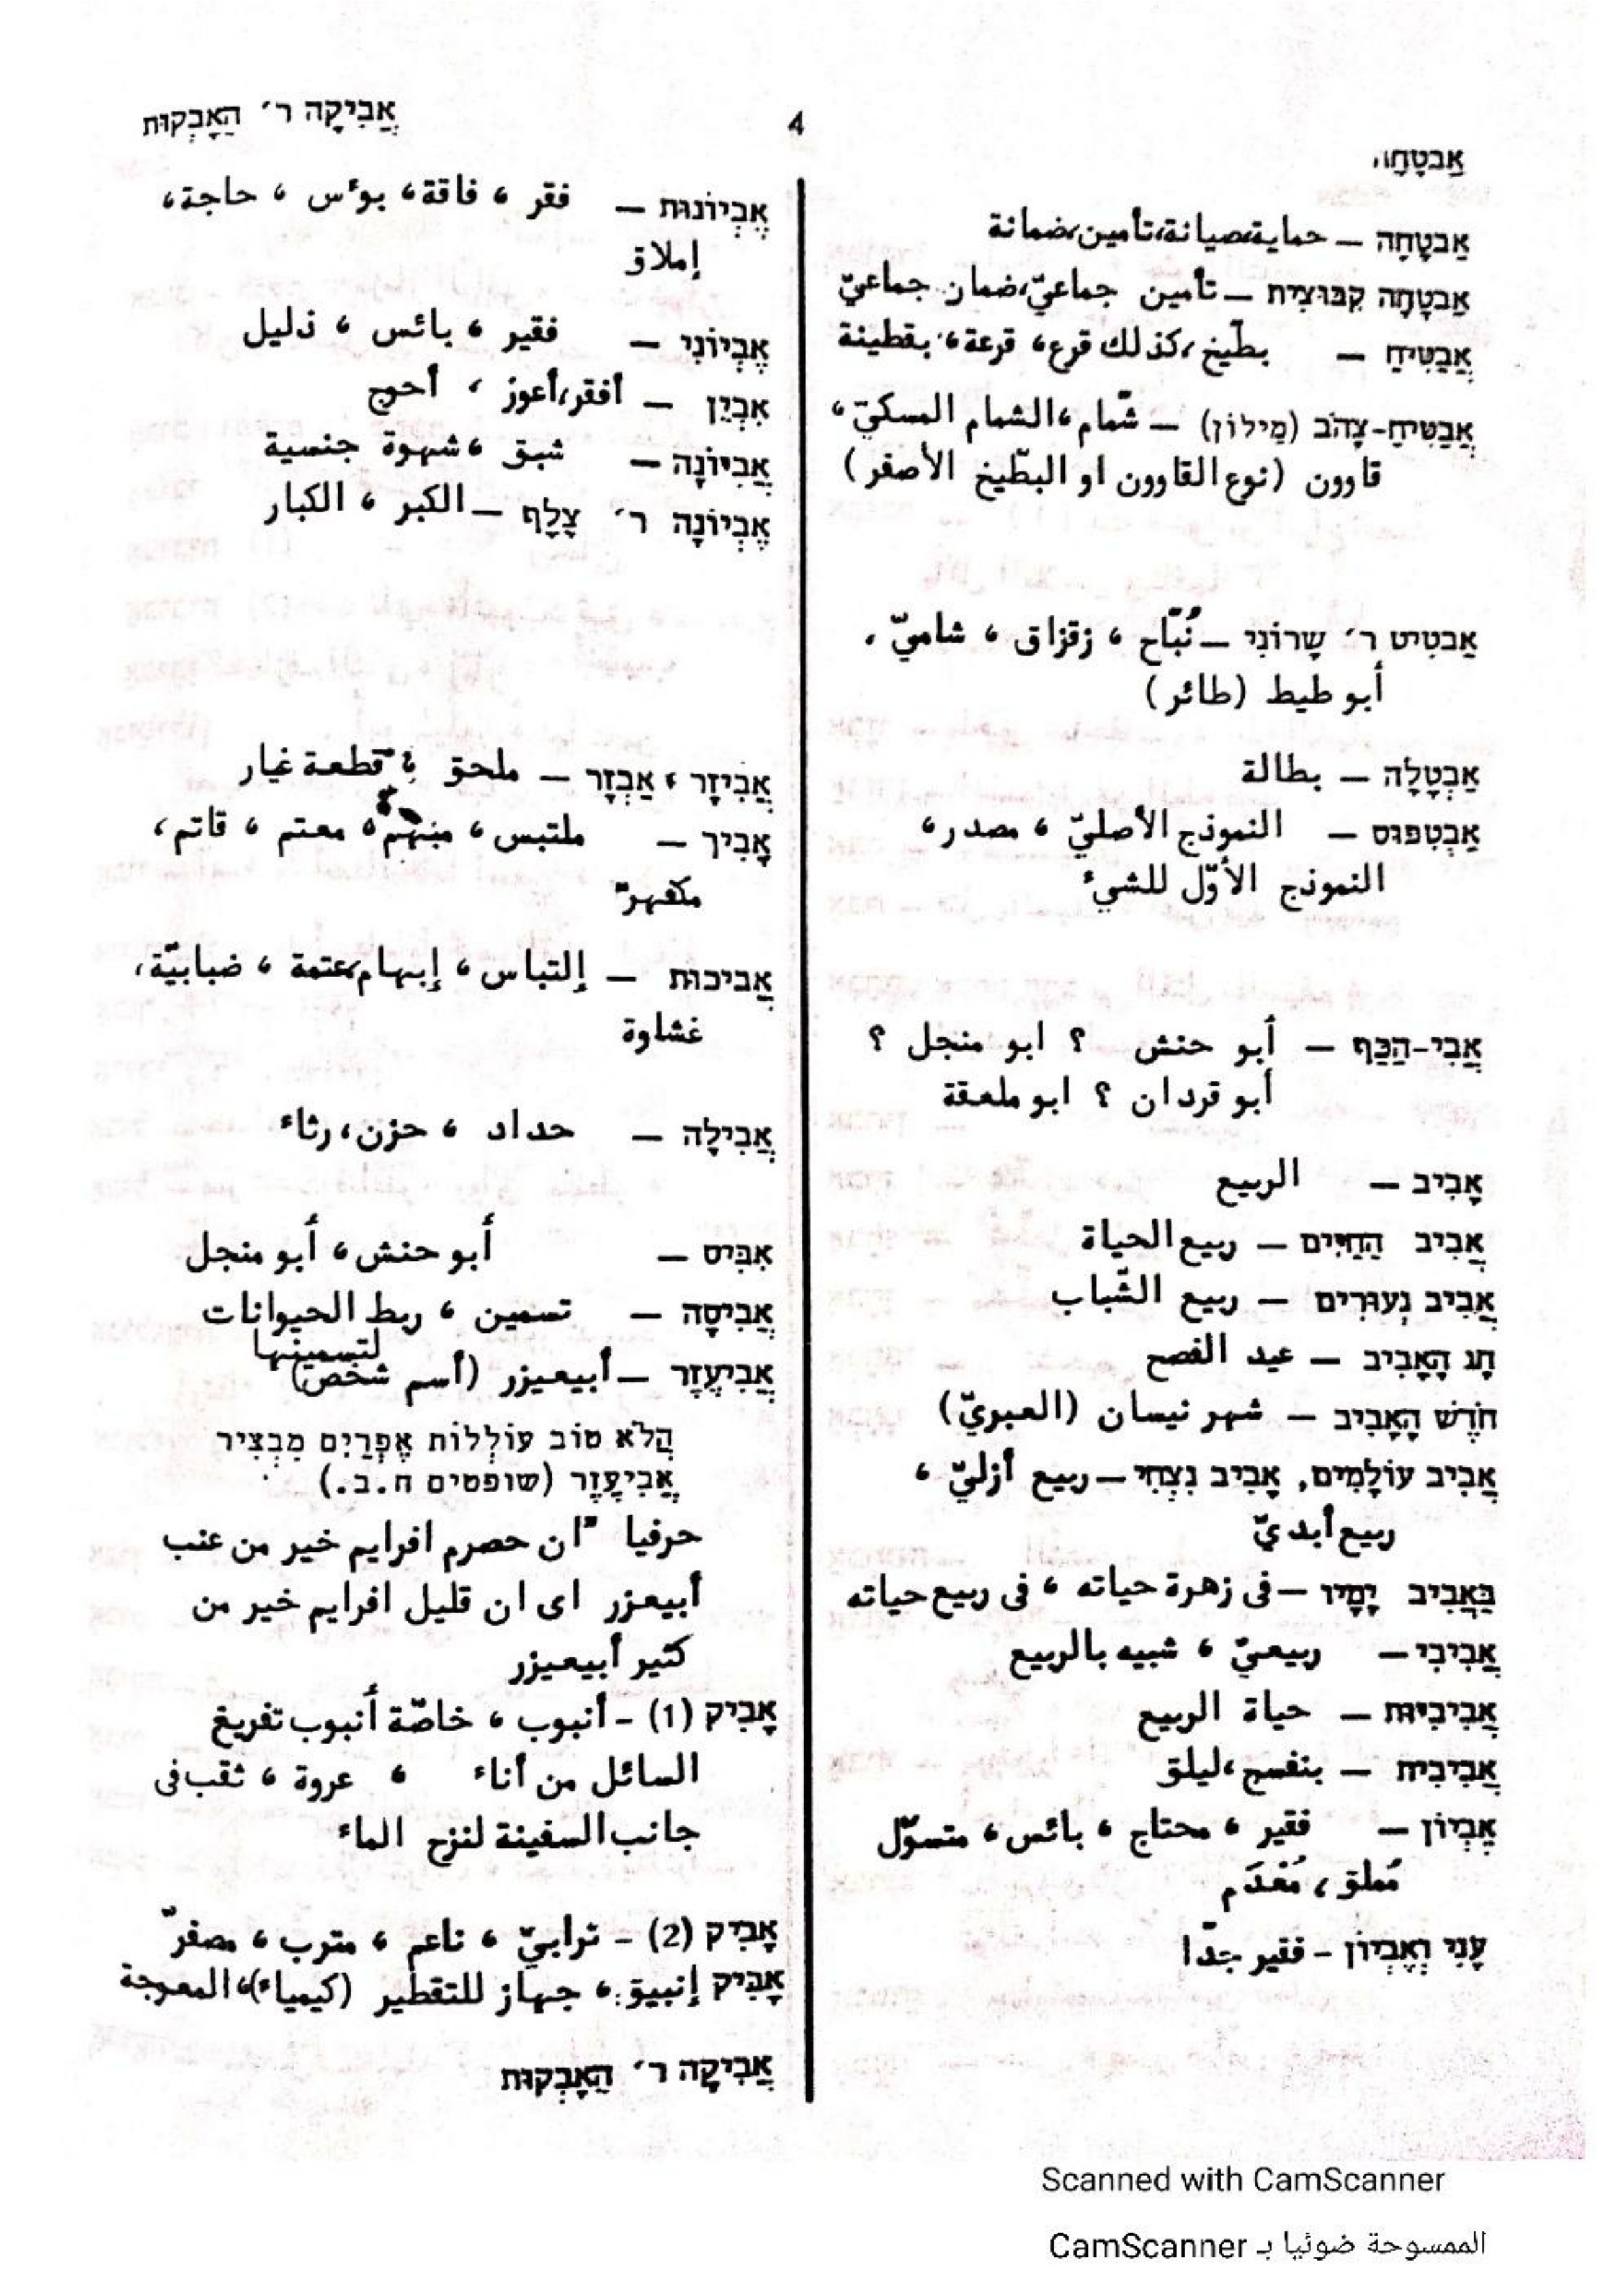 אַבטָחָה
4
אֲבִיקָה ר׳ הַאָבְקוּת
אַבטָחָה – حماية،صيانة،تأمين،ضمانة
אַבטָחָה קִבּוּצִית – تأمين جماعيّ،ضمان جماعيّ
אֲבַטִיחַ – بطّيخ،كذلك قرع، قرعة، بقطينة
אֲבַטִיחַ-צָהֹב (מֵילוֹן) – شّمام،الشمام المسكيّ،
قاوون (نوع القاوون او البطّيخ الأصفر)
אַבטִיט ר׳ שָרוֹנִי – نُبّاح ، زقزاق ، شاميّ ،
أبو طيط (طائر)
אַבְטָלָה – بطالة
אַבְטִפּוּס – النموذج الأصليّ ، مصدر،
النموذج الأوّل للشيء
אֲבִי-הַכַּף – أبو حنش ؟ ابو منجل ؟
أبو قردان ؟ ابو ملعقة
אָבִיב – الربيع
אֲבִיב הַחַיִּים – ربيع الحياة
אֲבִיב נְעוּרִים – ربيع الشّباب
חָג הָאָבִיב – عيد الفصح
חֹדֶשׁ הָאָבִיב – شهر نيسان (العبريّ)
אֲבִיב עוֹלָמִים, אָבִיב נִצְחִי – ربيع أزليّ ،
ربيع أبديّ
בַּאֲבִיב יָמָיו – فى زهرة حياته ، فى ربيع حياته
אֲבִיבִי – ربيعيّ ، شبيه بالربيع
אֲבִיבִיּוּת – حياة الربيع
אֲבִיבִית – بنفسج،ليلق
אֶבְיוֹן – فقير ، محتاج ، بائس ، متسوّل
مُملق ، مُعْدَم
עָנִי וְאֶבְיוֹן – فقير جدّا
אֶבְיוֹנוּת – فقر ، فاقة، بوءس ، حاجة،
إملاق
אֶבְיוֹנִי – فقير ، بائس ، ذليل
אִבְיֵן – أفقر،أعوز ، أحوج
אֲבִיוֹנָה – شبق ،شهوة جنسية
אֶבְיוֹנָה ר׳ צָלָף – الكبر ، الكبار
אֲבִיזָר , אַבְזָר – ملحق ، قطعة غيار
אָבִיךְ – ملتبس ، مبهم، معتم ، قاتم ،
مكفهرّ
אֲבִיכוּת – إلتباس ، إبهام،عتمة ، ضبابيّة،
غشاوة
אֲבִילָה – حداد ، حزن،رثاء
אִבִּיס – أبو حنش ، أبو منجل
אֲבִיסָה – تسمين ، ربط الحيوانات
لتسمينها
אֲבִיעֶזֶר – أبيعيزر (أسم شخص)
הֲלֹא טוֹב עוֹלְלוֹת אֶפְרַיִם מִבְצִיר
אֲבִיעֶזֶר (שופטים ח.ב.)
حرفيا "ان حصرم افرايم خير من عنب
أبيعزر اى ان قليل افرايم خير من
كثير أبيعيزر
אָבִיק (1) – أنبوب ، خاصّة أنبوب تفريغ
السائل من أناء ، عروة ، ثقب فى
جانب السفينة لنزح الماء
אָבִיק (2) – ترابيّ ، ناعم ، مترب ، مصفرّ
אַבִּיק إنبيق ، جهاز للتقطير (كيمياء)، المعوجة
אֲבִיקָה ר׳ הַאָבְקוּת
Scanned with CamScanner
الممسوحة ضوئيا بـ CamScanner